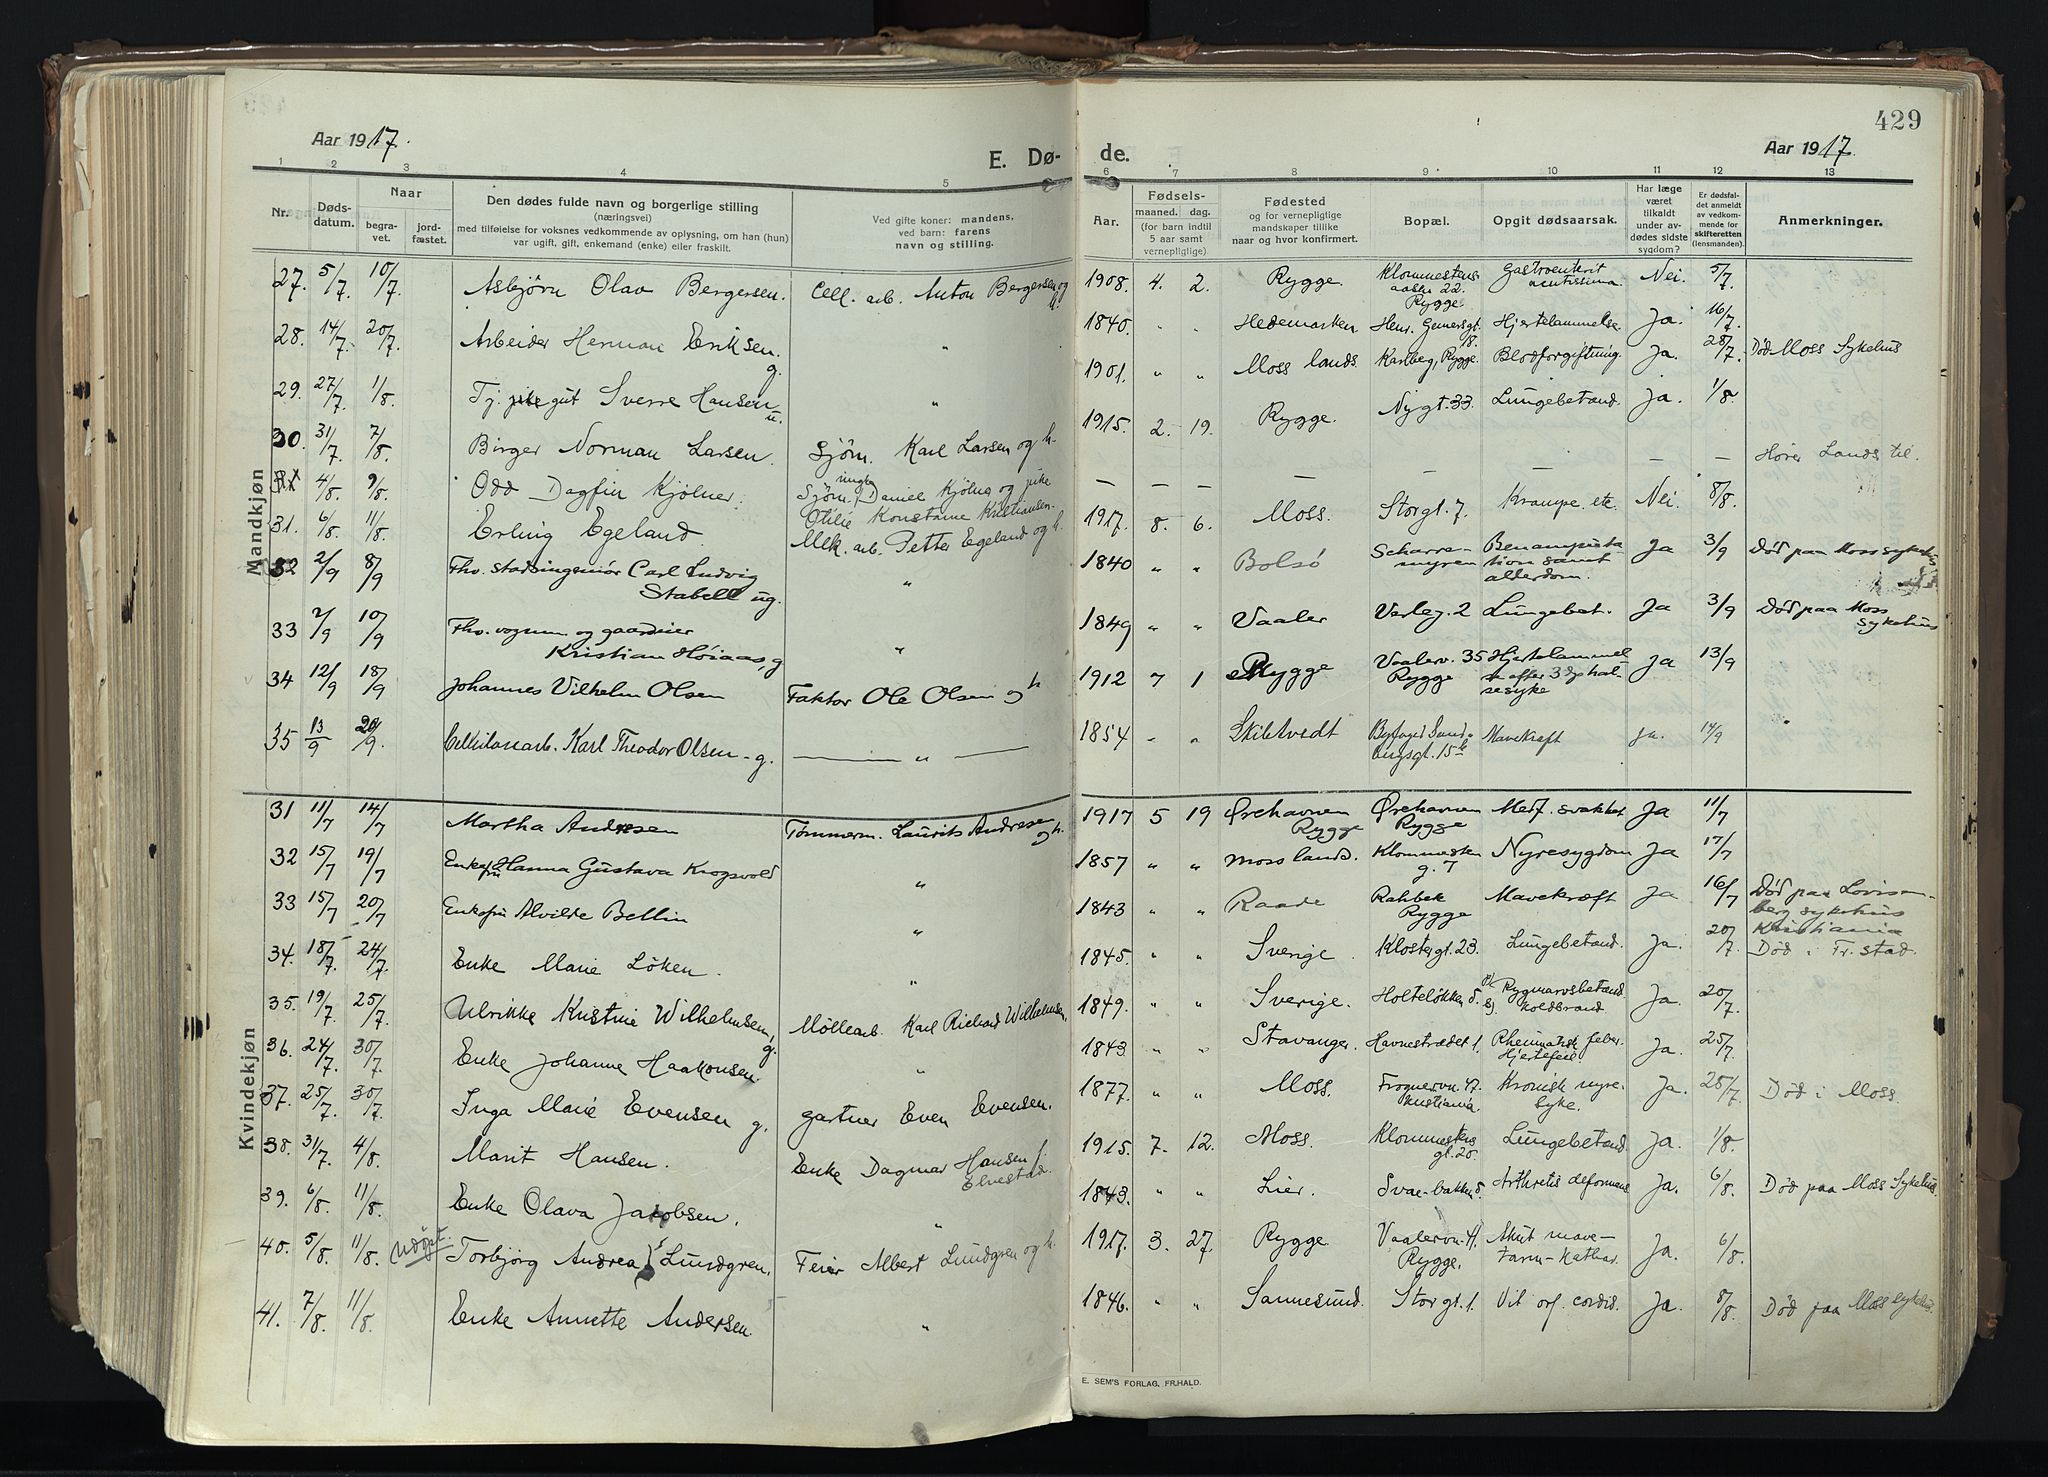 429
Aar 1917.
E. Dø-
de.
Aar 1917.
1 2 3 4 5 6 7 8 9 10 11 12 13
Nr. Døds-datum. Naar begra-vet. jord-fæstet. Den dødes fulde navn og borgerlige stilling (næringsvei) med tilføielse for voksnes vedkommende av oplysning, om han (hun) var ugift, gift, enkemand (enke) eller fraskilt. Ved gifte koner: mandens, ved barn: farens navn og stilling. Aar. Fødsels- maaned. dag. (for barn indtil 5 aar samt vernepligtige) Fødested og for vernepligtige mandskaper tillike naar og hvor konfirmert. Bopæl. Opgit dødsaarsak. Har læge været tilkaldt under av-dødes sidste sygdom? Er dødsfal-det anmeldt av vedkom-mende for skifteretten (lensmanden). Anmerkninger.
Mandkjøn
27. 5/7 10/7 Asbjörn Olav Bergersen. Cell. arb. Anton Bergersen og h. 1908. 4. 2. Rygge. 22. Rygge Gastroenterit acutissima. Nei. 5/7
28. 14/7. 20/7 Arbeider Herman Eriksen. g. " 1840. " " Hedemarken Henr. Gernersgt. 8. Hjertelammelse. Ja. 16/7
29. 27/7 1/8. Tj. gut Sverre Hansen u. " 1901. " " Moss lands. Karlberg, Rygge. Blodforgiftning. Ja. 28/7. Död Moss Sykehus
30. 31/7 7/8. Birger Norman Larsen. Sjöm. Karl Larsen og h. 1915. 2. 19. Rygge. Nygt. 33. Lungebetænd. Ja. 1/8.
4/8. 9/8. Odd Dagfin Kjölner. Sjöm. ungk. Daniel Kjölner og pike Otilie Konstanse Kristiansen. — — — — — — — — Hörer Lands til.
31. 6/8. 11/8. Erling Egeland. Mek. arb. Petter Egeland og h. 1917. 8. 6. Moss. Storgt. 7. Krampe etc. Nei. 8/8.
32 2/9 8/9 Fhv. stadsingeniör Carl Ludvig Stabell ug. " 1840 " " Bolsö Scharremyren Benamputation samt alderdom. Ja 3/9 Död paa Moss sykehus
33 2/9 10/9 Fhv. vognm og gaardeier Kristian Höiaas, g " 1849 " " Vaaler Varleg. 2 Lungebet. Ja 3/9 Död paa Moss sykehus
34 12/9 18/9 Johannes Vilhelm Olsen Faktor Ole Olsen og h 1912 7 1 Rygge Vaalerv. 35 Rygge Hjertelammelse efter halsesyke Ja 13/9
35 13/9 20/9. Cellulosearb. Karl Theodor Olsen - g. — " — 1854 - " Skiptvedt Byfoged Sandbergsgt. 15 Mavekræft ja. 14/9
Kvindekjøn
31 11/7 14/7 Martha Andresen Tömmerm. Laurits Andresen og h. 1917 5 19 Ørehavnen Rygge Ørehavnen Rygge Medf. svakhet Ja 11/7
32 15/7 19/7 Enkefru Hanna Gustava Krogsvold " 1857 " " Moss lands. Klommesten g. 7 Nyresygdom Ja 17/7
33 15/7 20/7 Enkefru Alvilde Bellin " 1843 " " Raade Rahbek Rygge Mavekræft Ja 16/7 Död paa Lovisenberg sykehus Kristiania
34. 18/7 24/7. Enke Marie Löken. " 1845. " " Sverige. Klostergt. 23. Lungebetænd. Ja. 20/7. Död i Fr.stad.
35. 19/7. 25/7. Ulrikke Kristine Wilhelmsen, g. Möllearb. Karl Richard Wilhelmsen. 1849. " " Sverige. Holtelökken 5. Rygmarvsbetænd. og koldbrand Ja. 20/7.
36. 24/7. 30/7. Enke Johanne Haakonsen. " 1843 " " Stavanger. Havnestrædet 1. Rheumatisk feber. Hjertefeil Ja. 25/7.
37. 25/7. 30/7. Inga Marie Evensen g. gartner Even Evensen. 1877. " " Moss. Frognervn. 47. Kristiania. Kronisk nyresyke. Ja. 28/7. Död i Moss.
38. 31/7. 4/8. Marit Hansen. Enke Dagmar Hansen f. Elvestad. 1915. 7. 12. Moss. Klommestensgt. 20. Lungebetænd. Ja. 1/8.
39. 6/8. 11/8. Enke Olava Jacobsen. " 1843. " " Lier. Svae-bakken 5. Arthretis deformans Ja. 6/8. Död paa Moss Sykehus.
40. 5/8. 11/8. udöpt. Torbjörg Andrea Lundgren. Feier Albert Lundgren og h. 1917. 3. 27. Rygge. Vaalervn. 41. Rygge. Akut mave-tarm-kathar. Ja. 6/8.
41. 7/8. 11/8. Enke Annette Andersen. " 1846. " " Sannesund. Storgt. 1. Vit. orf. cordis. Ja. 8/8. Död paa Moss sykehus.
E. SEM'S FORLAG, FR.HALD.